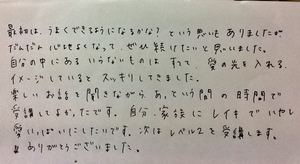 最初は、うまくできるようになるかな？という思いもありましたが
だんだん心地よくなって、ぜひ続けたいと思いました。
自分の中にある いらないものは すてて、愛の光を入れる
イメージしていると スッキリしてきました。
楽しいお話を聞きながら、あっという間の時間で
受講してよかったです。自分、家族に レイキで いやし
愛いっぱいにしたいです。次は レベル2を受講します。
ありがとうございました。